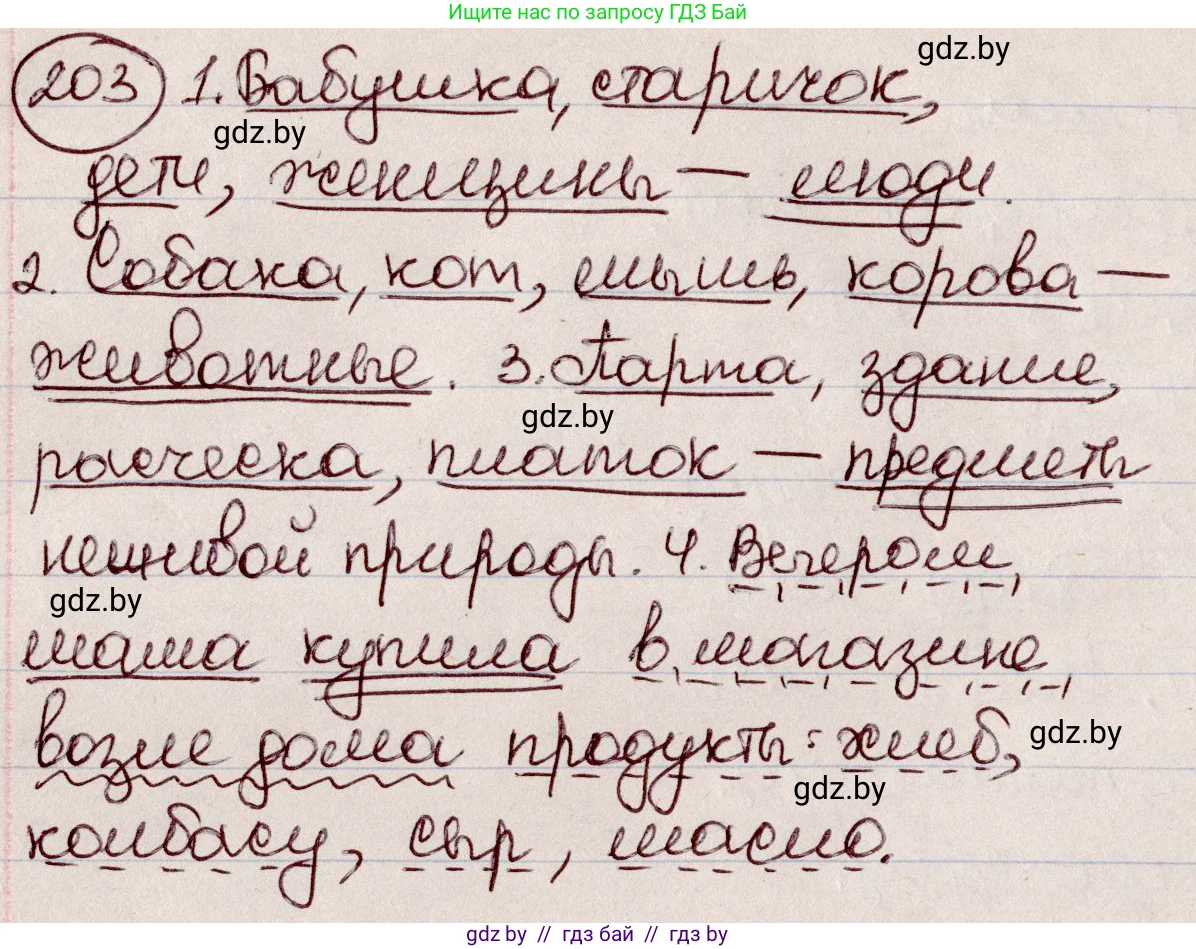 Ищите нас по запросу ГДЗ Бай
gdz.by
203 1. Бабушка, старичок,
gdz.by
дети, женщины — люди.
2. Собака, кот, мышь, корова —
животные. 3. Парта, здание,
gdz.by
расческа, платок — предметы
неживой природы. 4. Вечером
gdz.by
мама купила в магазине
возле дома продукты: хлеб,
gdz.by
gdz.by
колбасу, сыр, масло.
gdz.by // гдз бай // gdz by